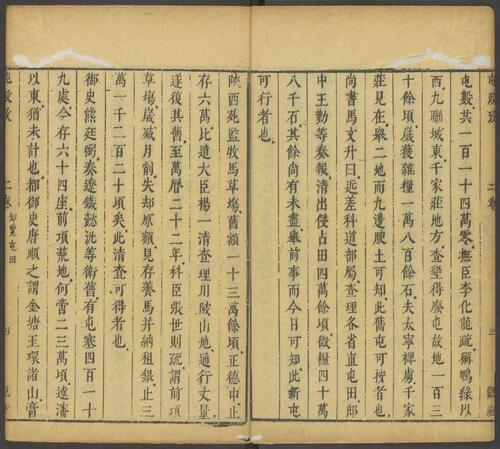 屯穀共一百一十四萬零撫臣李化龍疏稱鴨綠以
西九聯城東千家莊地方查墾得廢屯故地一百三
十餘頃歲獲雜糧一萬八百餘石夫太寧禪虜千家
莊見在舉二地而九邊腴土可知此舊屯可按者也
尚書馬文升曰近差科道部屬查理各省直屯田郎
中王勤等奏報清出侵占田四萬餘頃徵糧四十萬
八千石其餘尚有未盡舉前事而今日可知此新屯
可行者也
陜西苑監牧馬草塲舊額一十三萬餘頃正德中止
存六萬比遣大臣楊一清查理川陂山地通行丈量
遂復其舊至萬曆二十二年科臣張世則疏謂前項
草塲歲減月削失却原額見存養馬并納租銀止三
萬一千二百二十頃矣此清查可得者也
御史熊廷弼奏遼鐵懿沈等衛舊有屯塞四百一十
九處今存六十四座前項荒地何啻二三萬頃遼瀋
以東猶未計也都御史唐順之謂金塘玉環諸山膏
二卷
御覽屯田
四